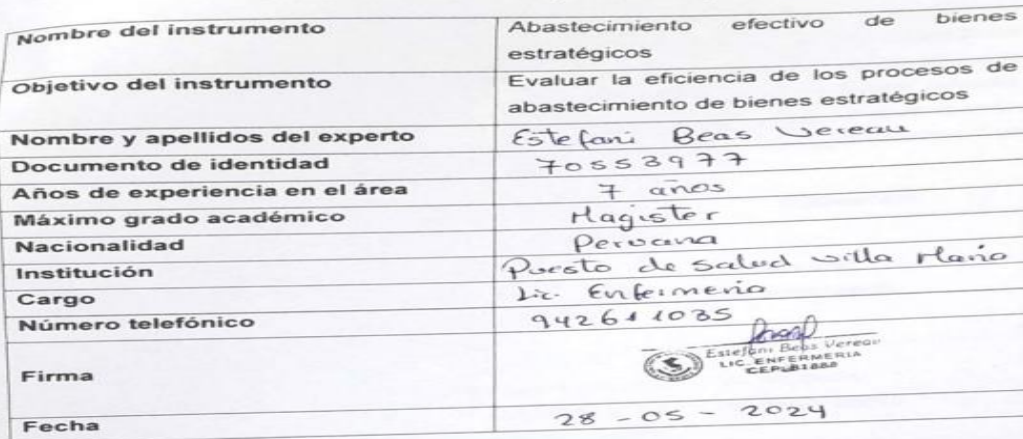 Nombre del instrumento Abastecimiento efectivo de bienes
estratégicos
Objetivo del instrumento Evaluar la eficiencia de los procesos de
abastecimiento de bienes estratégicos
Nombre y apellidos del experto Estefani Beas Vereau
Documento de identidad 70553977
Años de experiencia en el área 7 años
Máximo grado académico Magister
Nacionalidad Peruana
Institución Puesto de Salud Villa María
Cargo Lic. Enfermeria
Número telefónico 942611035
Firma Estefani Beas Vereau
LIC. ENFERMERIA
Fecha 28-05-2024